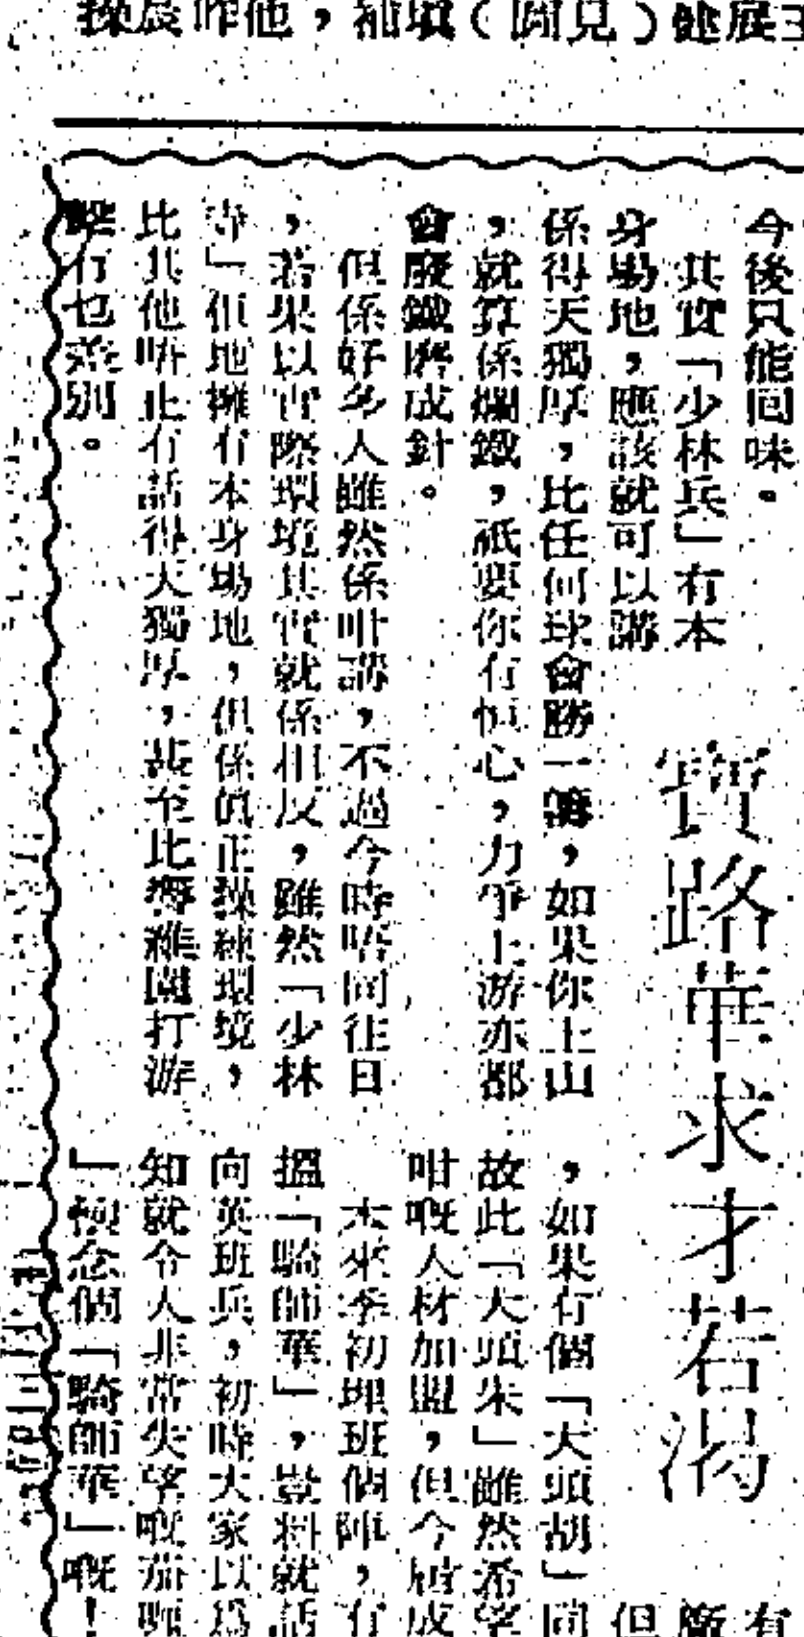 今後只能回味。
其實「少林兵」有本
身場地，應該就可以講
係得天獨厚，比任何球會勝一籌，如果你上山
，就算係爛鐵，祇要你有恒心，力爭上游亦都
會廢鐵磨成針。
但係好多人雖然係咁講，不過今時唔同往日
，若果以實際環境其實就係相反，雖然「少林
寺」佢地擁有本身場地，但係真正操練環境，
比其他唔止冇話得天獨厚，甚至比摩雜園打游
擊冇乜差別。
寶路華求才若渴
，如果有個「大頭胡」同
故此「大頭朱」雖然希望
咁嘅人材加盟，但今屆成
本來季初埋班個陣，有
搵「騎師華」，豈料就話
向英班兵，初時大家以為
知就令人非常失望嘅茄喱
」懷念個「騎師華」嘅！